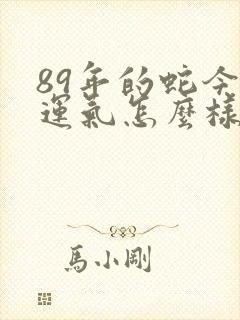 89年的蛇今
運氣怎麼樣
馬小剛